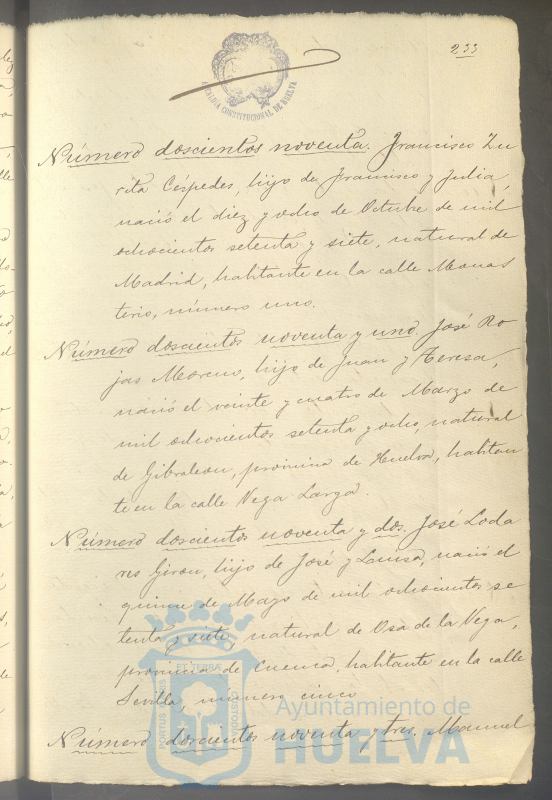 233
ALCALDIA CONSTITUCIONAL DE HUELVA
Número doscientos noventa. Francisco Zu
rita Céspedes, hijo de Francisco y Julia,
nació el diez y ocho de Octubre de mil
ochocientos setenta y siete, natural de
Madrid, habitante en la calle Monas
terio, número uno.
Número doscientos noventa y uno. José Ro
jas Moreno, hijo de Juan y Teresa,
nació el veinte y cuatro de Marzo de
mil ochocientos setenta y ocho, natural
de Gibraleon, provincia de Huelva, habitan
te en la calle Vega Larga.
Número doscientos noventa y dos. José Loda
res Giron, hijo de José y Luisa, nació el
quince de Mayo de mil ochocientos se
tenta y siete, natural de Osa de la Vega,
provincia de Cuenca, habitante en la calle
Sevilla, número cinco
Número doscientos noventa y tres. Manuel
PORTUS MARIS ET TERRÆ CUSTODIA
Ayuntamiento de
HUELVA